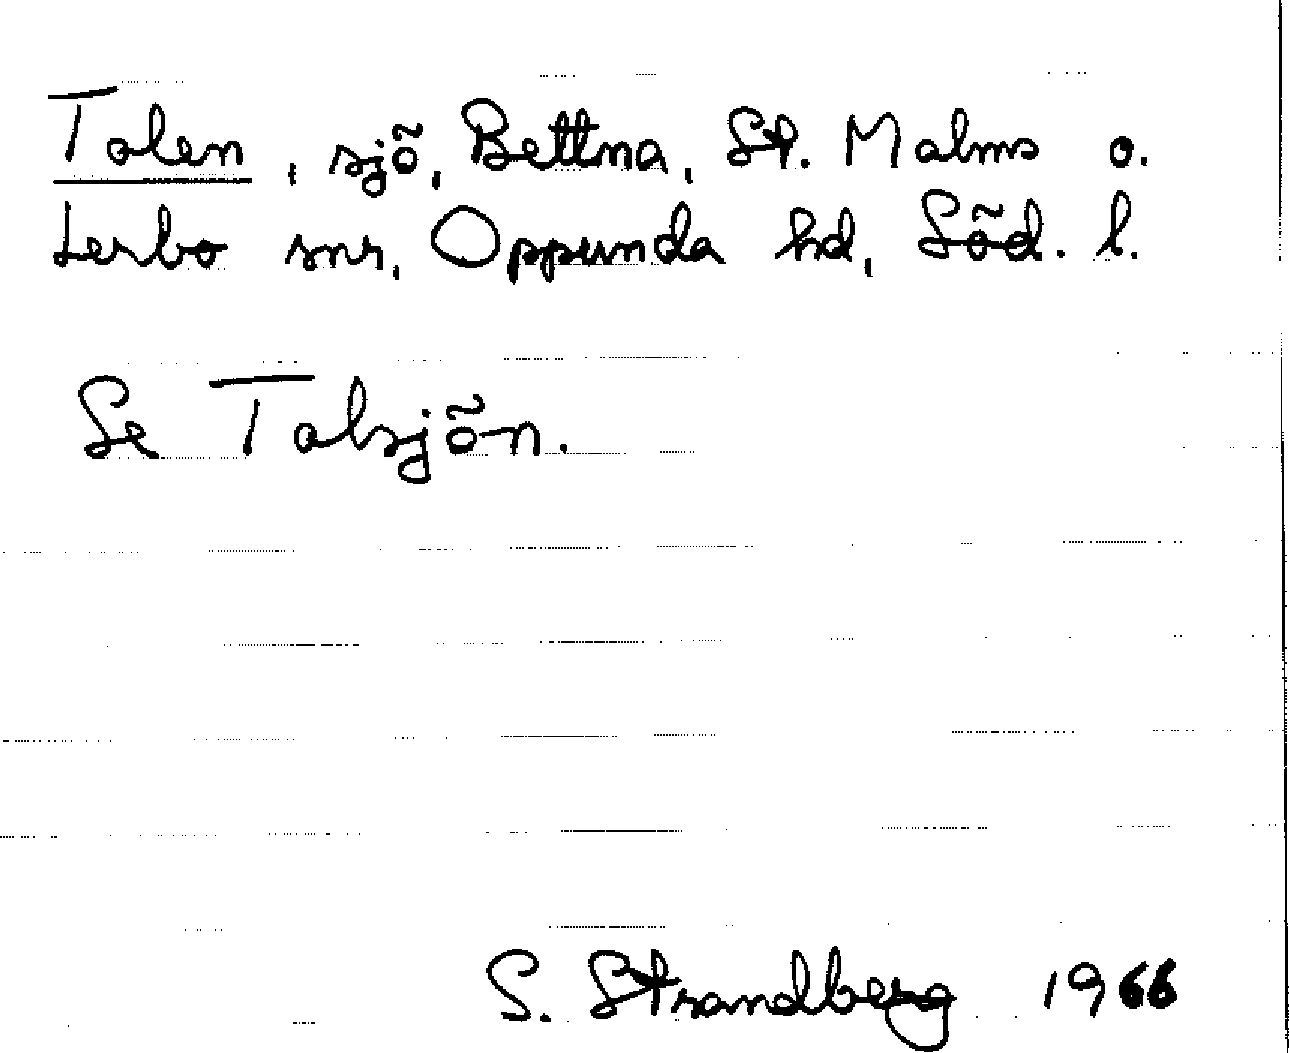 Talen, sjö, Bettna, St. Malms o.
Lerbo snr, Oppunda hd, Söd. l.
Se Talsjön.
S. Strandberg 1966